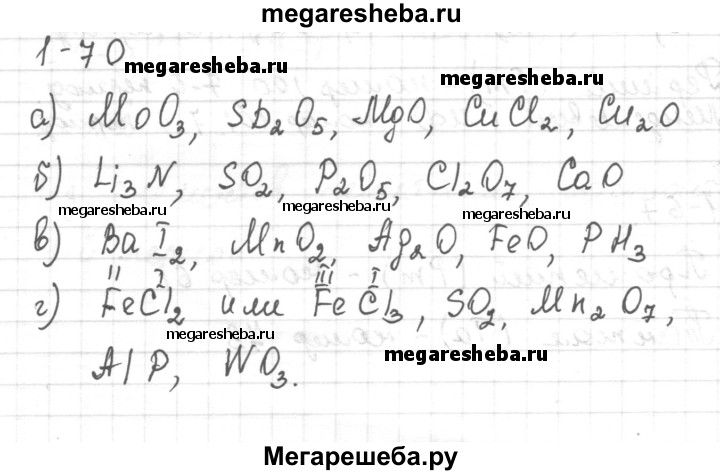 megaresheba.ru
1-70
megaresheba.ru megaresheba.ru
а) MoO3, Sb2O5, MgO, CuCl2, Cu2O
б) Li3N, SO2, P2O5, Cl2O7, CaO
megaresheba.ru megaresheba.ru megaresheba.ru
в) BaI2, MnO2, Ag2O, FeO, PH3
II I III I
г) FeCl2 или FeCl3, SO2, Mn2O7,
megaresheba.ru
AlP, WO3.
megaresheba.ru
megaresheba.ru
Мегарешеба.ру